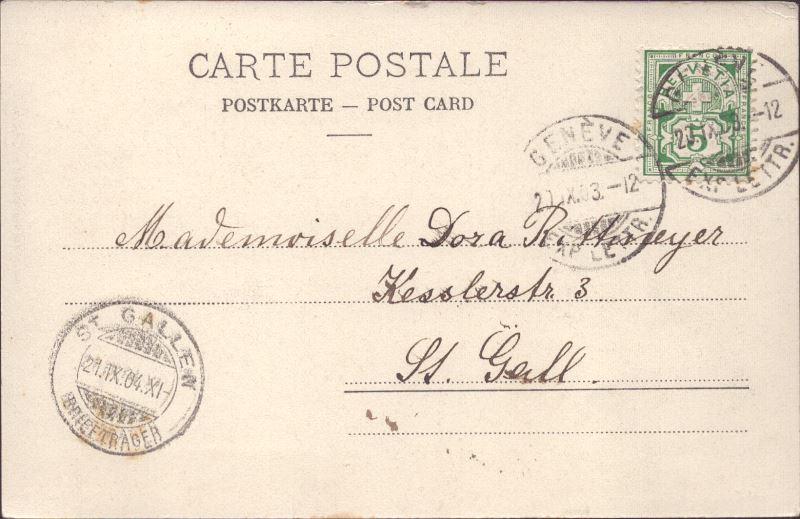 CARTE POSTALE
POSTKARTE — POST CARD
HELVETIA
5
EXP. LETTR.
GENÈVE
IX.03.-12
EXP. LETTR.
Mademoiselle Dora Rittmeyer
Kesslerstr. 3
St. Gall.
ST. GALLEN
21.IX.04.XI-
BRIEFTRÄGER